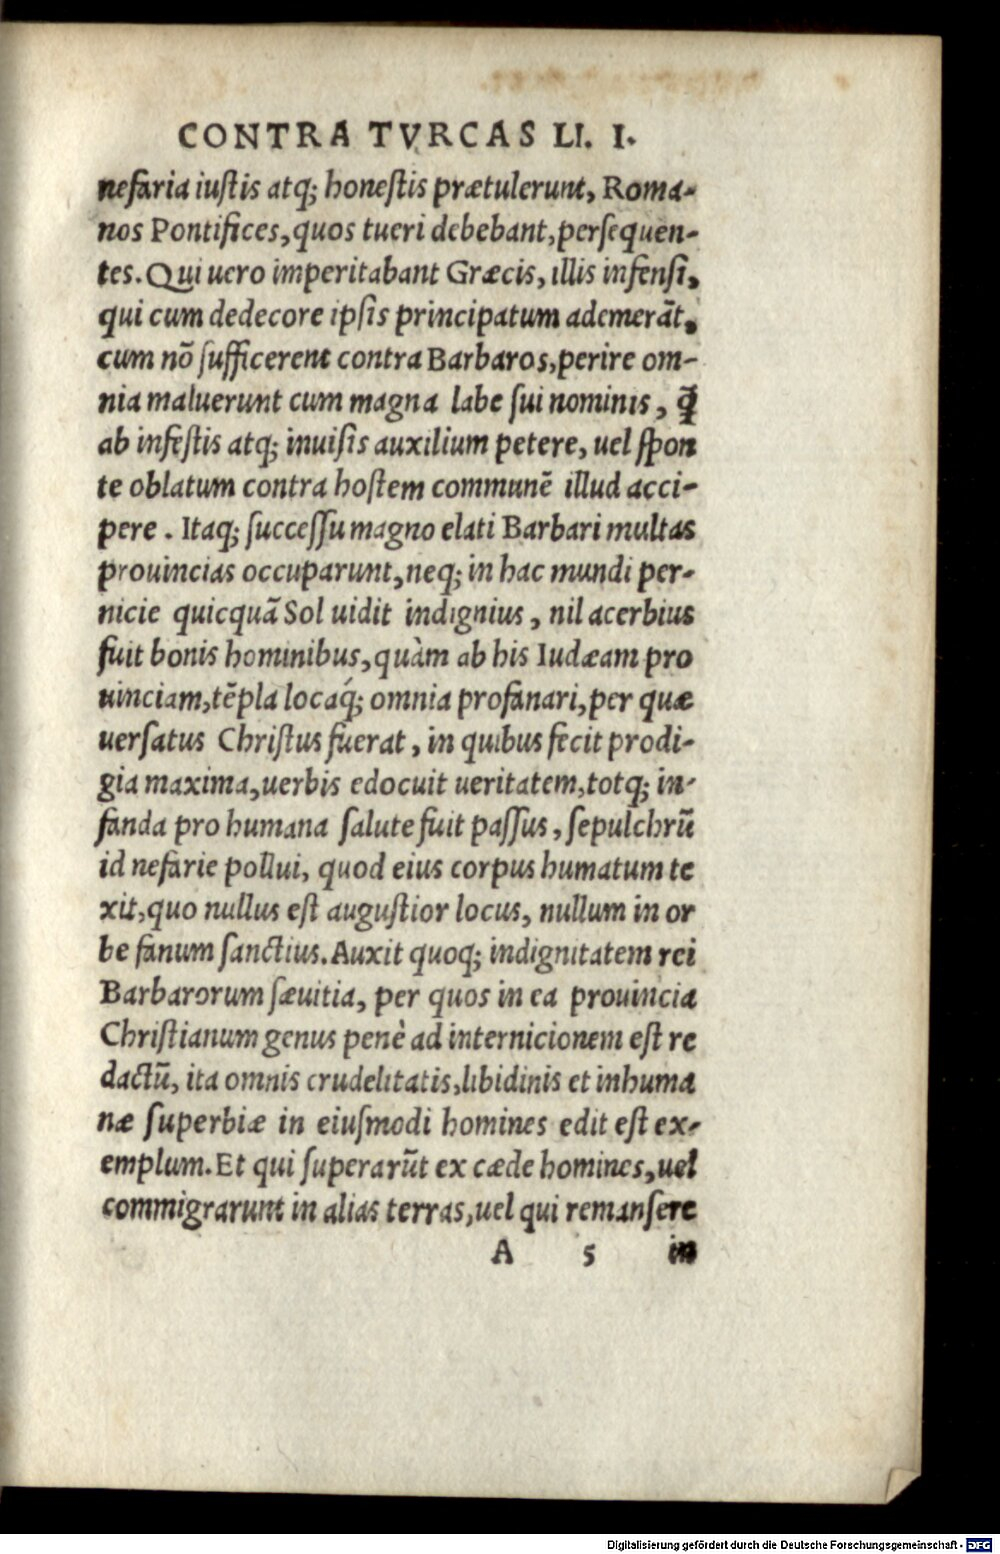 CONTRA TVRCAS LI. I.
nefaria iustis atq; honestis prætulerunt, Roma-
nos Pontifices, quos tueri debebant, persequen-
tes. Qui uero imperitabant Græcis, illis infensi,
qui cum dedecore ipsis principatum ademerāt,
cum nō sufficerent contra Barbaros, perire om-
nia maluerunt cum magna labe sui nominis, q̄
ab infestis atq; inuisis auxilium petere, uel spon
te oblatum contra hostem communē illud acci-
pere. Itaq; successu magno elati Barbari multas
prouincias occuparunt, neq; in hac mundi per-
nicie quicquā Sol uidit indignius, nil acerbius
fuit bonis hominibus, quàm ab his Iudæam pro
uinciam, tēpla locaq́; omnia profanari, per quæ
uersatus Christus fuerat, in quibus fecit prodi-
gia maxima, uerbis edocuit ueritatem, totq; in-
fanda pro humana salute fuit passus, sepulchrū
id nefarie pollui, quod eius corpus humatum te
xit, quo nullus est augustior locus, nullum in or
be fanum sanctius. Auxit quoq; indignitatem rei
Barbarorum sæuitia, per quos in ea prouincia
Christianum genus penè ad internicionem est re
dactū, ita omnis crudelitatis, libidinis et inhuma
næ superbiæ in eiusmodi homines edit est ex-
emplum. Et qui superarūt ex cæde homines, uel
commigrarunt in alias terras, uel qui remansere
A 5 in
Digitalisierung gefördert durch die Deutsche Forschungsgemeinschaft - DFG